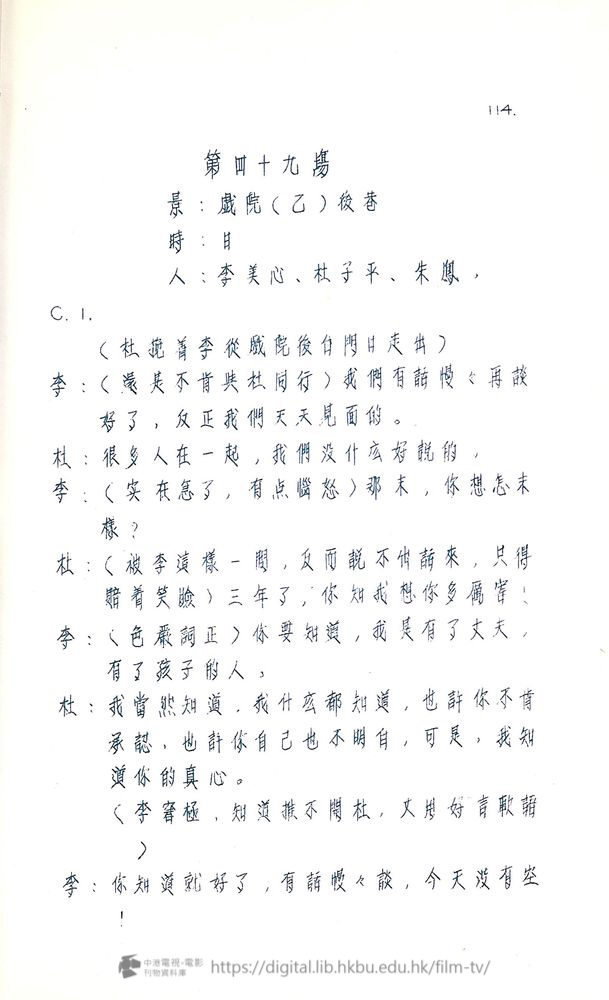 114.
第四十九場
景：戲院（乙）後巷
時：日
人：李美心、杜子平、朱鳳，
C. 1.
（杜拖着李從戲院後台門口走出）
李：（還是不肯與杜同行）我們有話慢々再談
好了，反正我們天天見面的。
杜：很多人在一起，我們没什么好説的，
李：（实在急了，有点惱怒）那末，你想怎末
樣？
杜：（被李這樣一問，反而説不出話來，只得
賠着笑臉）三年了，你知我想你多厲害！
李：（色嚴詞正）你要知道，我是有了丈夫，
有了孩子的人，
杜：我當然知道，我什么都知道，也許你不肯
承認，也許你自己也不明白，可是，我知
道你的真心。
（李窘極，知道推不開杜，又用好言軟語
）
李：你知道就好了，有話慢々談，今天没有空
！
中港電視·電影
刊物資料庫
https://digital.lib.hkbu.edu.hk/film-tv/